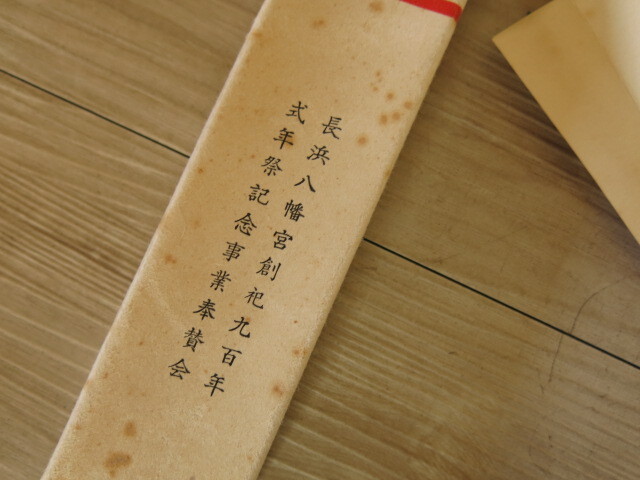 長浜八幡宮創祀九百年
式年祭記念事業奉賛会